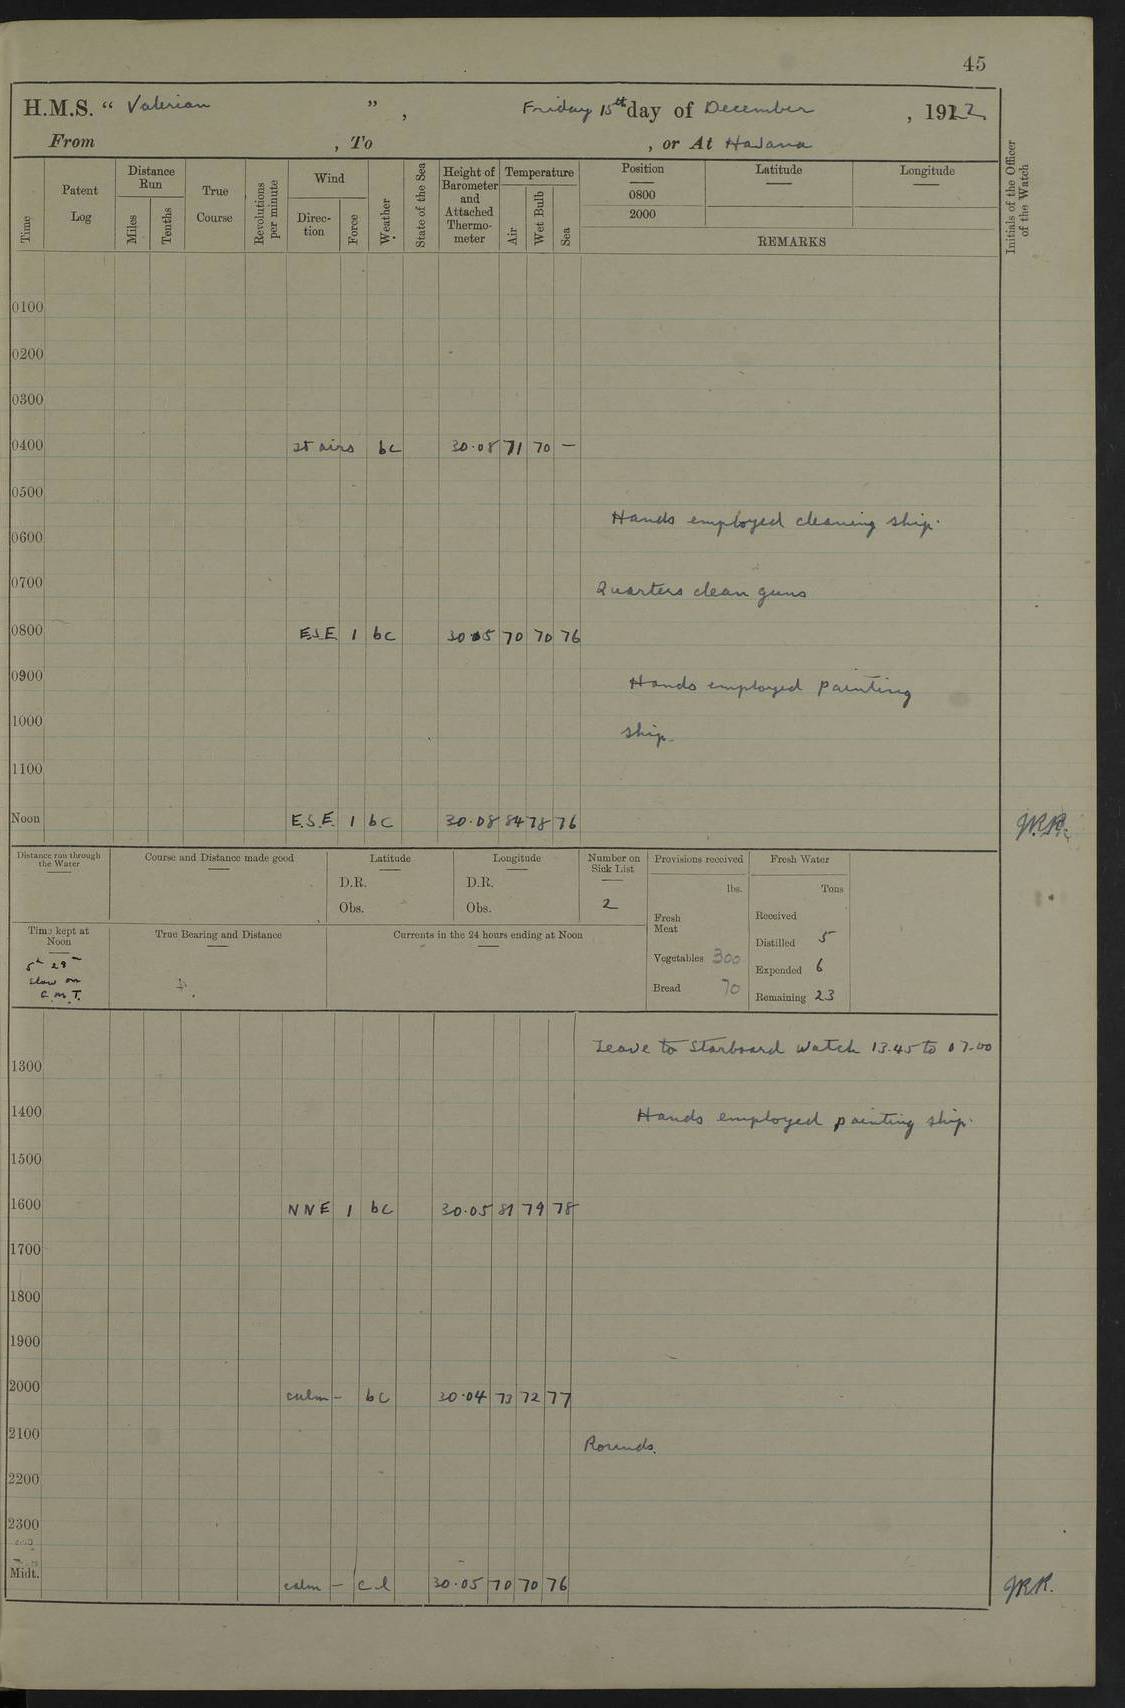 45
H.M.S. “ Valerian ” , Friday 15th day of December , 1922
From , To , or At Havana
Time
Patent Log
Distance Run
Miles
Tenths
True Course
Revolutions per minute
Wind
Direc-tion
Force
Weather
State of the Sea
Height of Barometer and Attached Thermo-meter
Temperature
Air
Wet Bulb
Sea
Position
0800
2000
Latitude
Longitude
REMARKS
Initials of the Officer of the Watch
0100
0200
0300
0400 lt airs bc 30.08 71 70 —
0500
Hands employed cleaning ship.
0600
0700 Quarters clean guns
0800 E.S.E 1 bc 30.05 70 70 76
0900 Hands employed painting
1000 ship.
1100
Noon E.S.E. 1 bc 30.08 84 78 76
Distance run through the Water
Course and Distance made good
Latitude
D.R.
Obs.
Longitude
D.R.
Obs.
Number on Sick List
2
Provisions received
lbs.
Fresh Meat
Vegetables 300
Bread 70
Fresh Water
Tons
Received
Distilled 5
Expended 6
Remaining 23
Time kept at Noon
5h 29m
slow on
G.M.T.
True Bearing and Distance
Currents in the 24 hours ending at Noon
Leave to Starboard Watch 13.45 to 07.00
1300
1400 Hands employed painting ship.
1500
1600 NNE 1 bc 30.05 81 79 78
1700
1800
1900
2000 calm – bc 30.04 73 72 77
2100 Rounds.
2200
2300
Midt. calm – c l 30.05 70 70 76